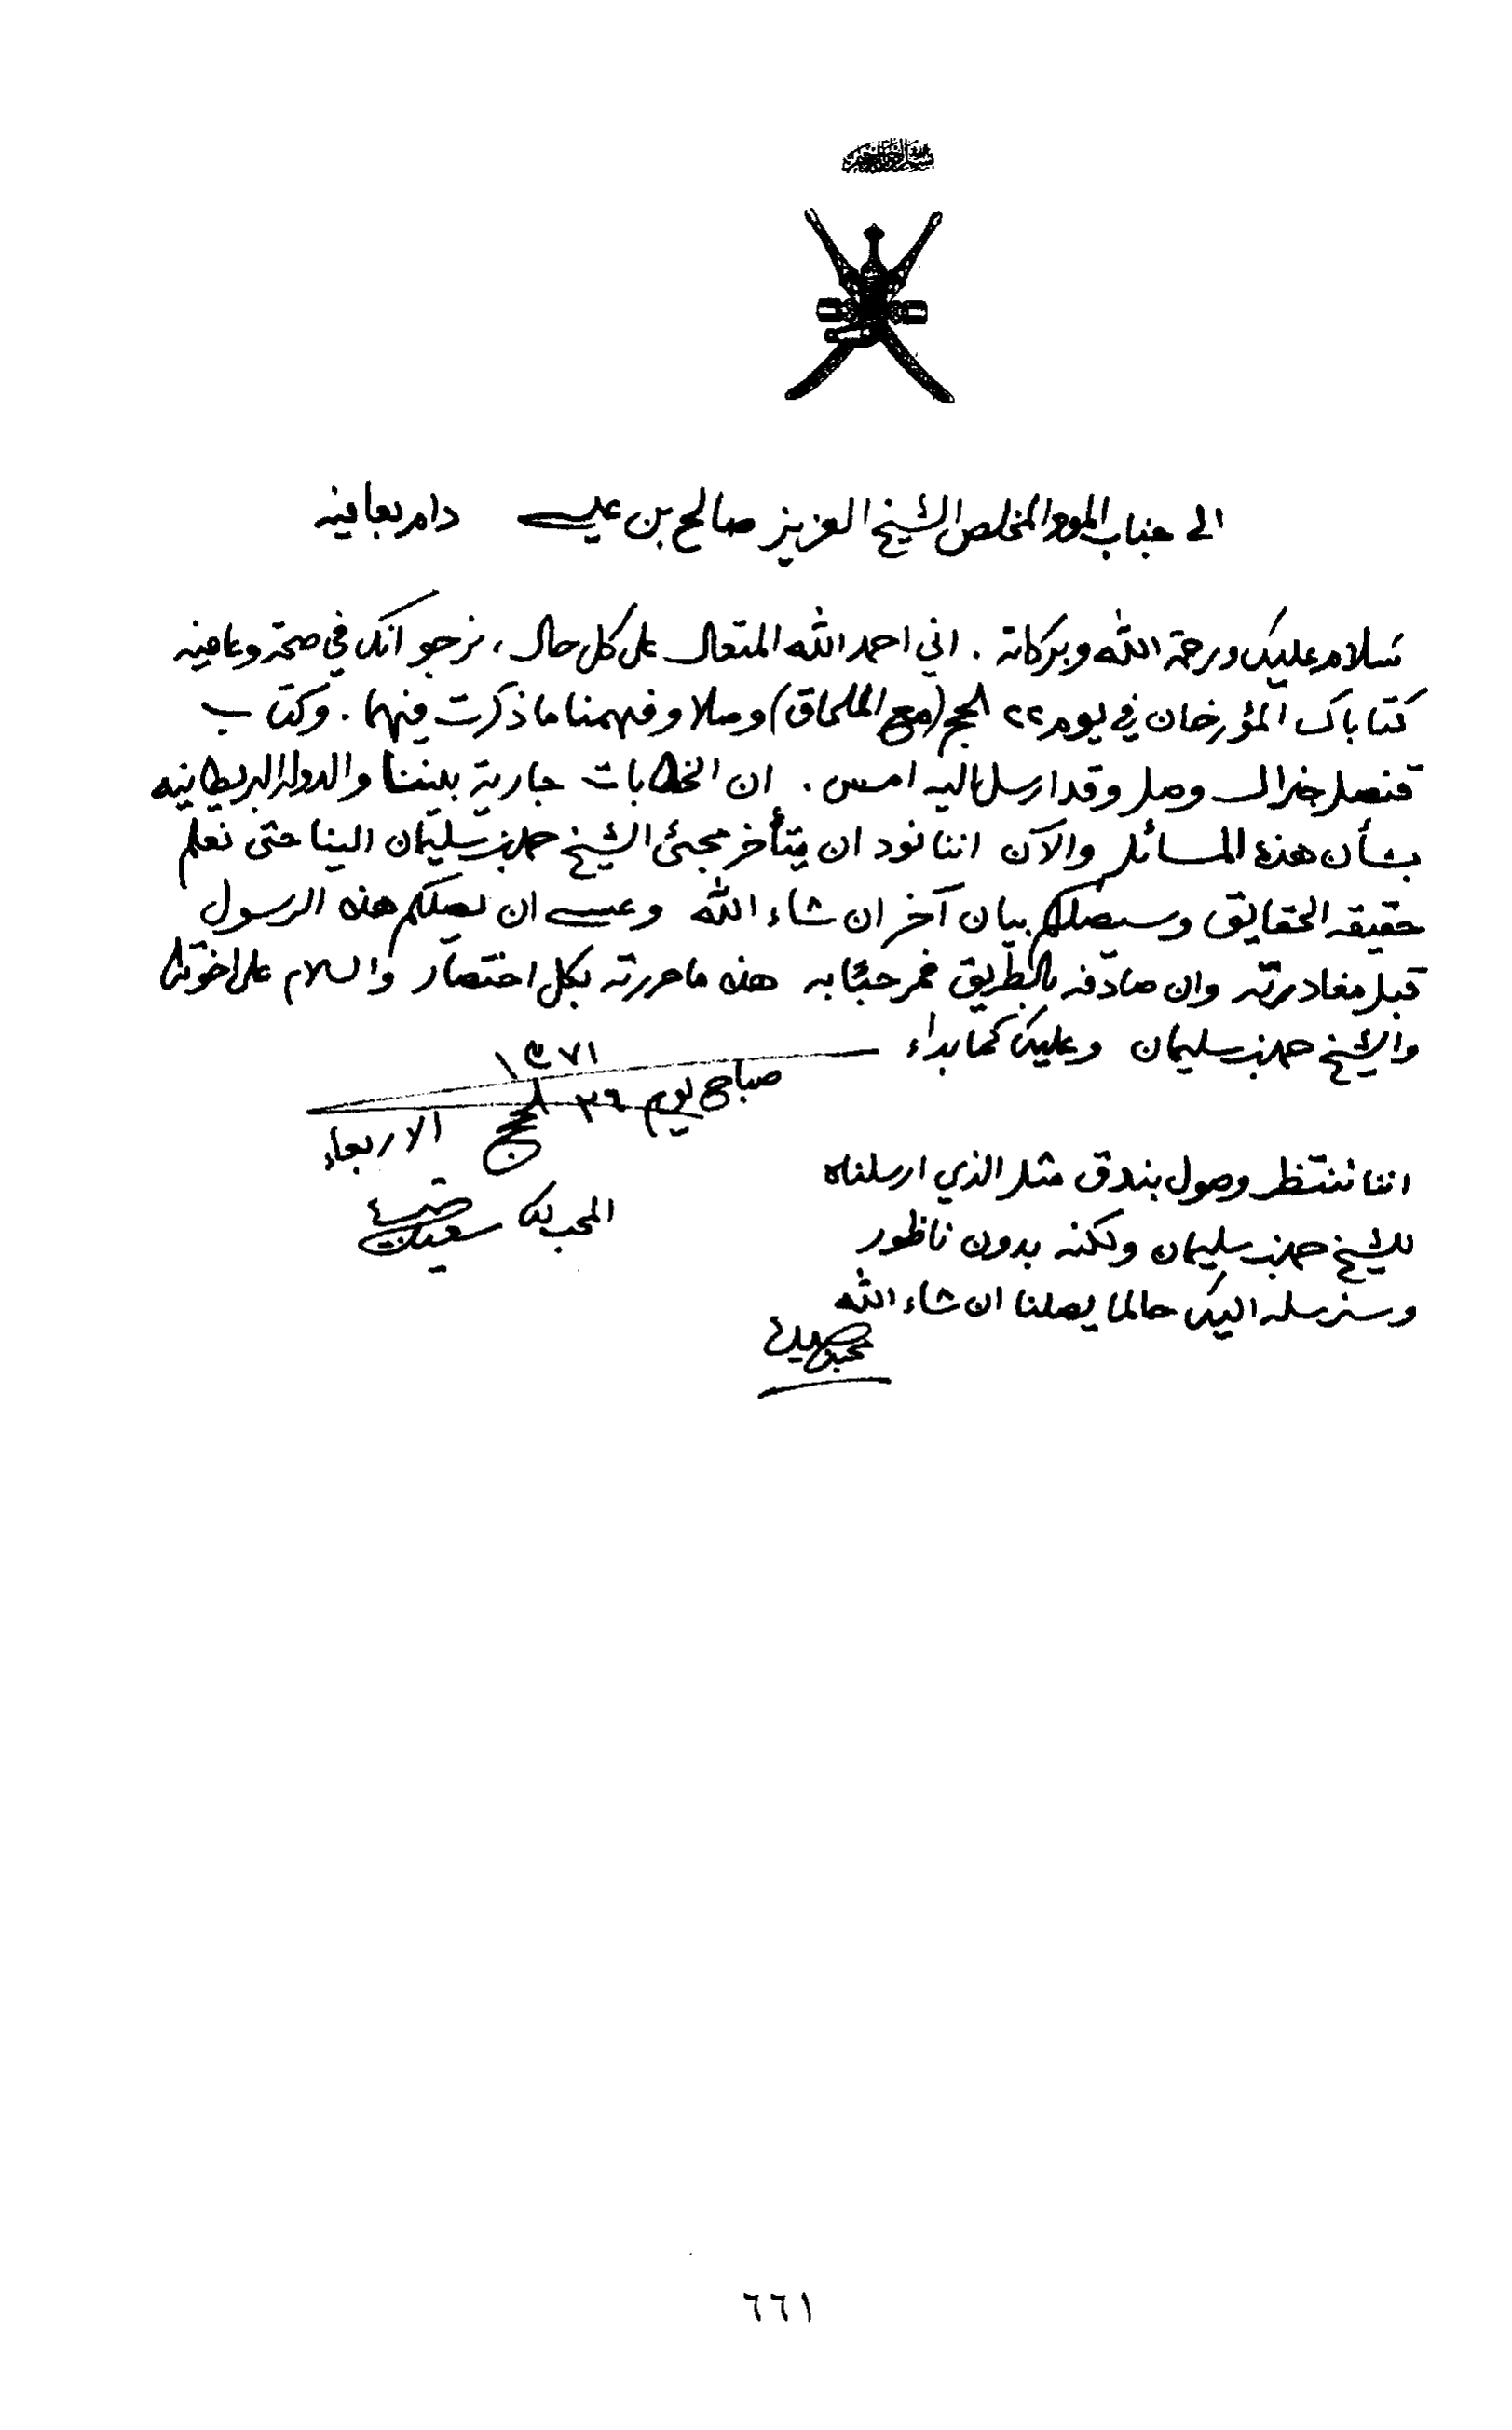 الى جناب المود المخلص الشيخ العزيز صالح بن عيسى دام بعافيه
سلام عليك ورحمة الله وبركاته . اني احمد الله المتعال على كل حال ، نرجو انك في صحة وعافيه
كتاباك المؤرخان في يوم ٢٢ الحج (مع الملحاق) وصلا وفهمنا ما ذكرت فيهما . وكتاب
قنصل جنرال وصل وقد ارسل اليه امس . ان الخطابات جارية بيننا والدولة البريطانيه
بشأن هذه المسائل والآن اننا نود ان يتأخر مجئ الشيخ حمد بن سليمان الينا حتى نعلم
حقيقه الحقايق وسيصلكم بيان آخر ان شاء الله وعسى ان يصلكم هذه الرسول
قبل مغادرته وان صادفه بالطريق جئنا به هذه ما حررته بكل اختصار والسلام على اخوتك
والشيخ حمد بن سليمان وعليك كما بداء
١٣٧١
صباح يوم ٢٦ الحج الاربعاء
المحب لك
سعيد بن
اننا ننتظر وصول بندق مثل الذي ارسلناه
للشيخ حمد بن سليمان ولكنه بدون ناظور
وسنرسله اليك حالما يصلنا ان شاء الله
٦٦١